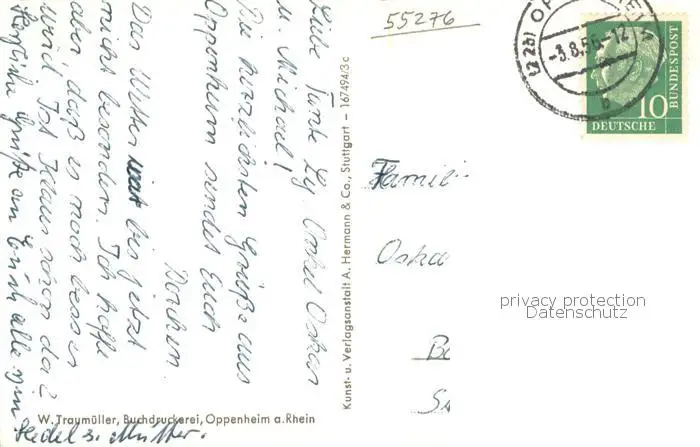 55276
(22b) OPPENHEIM
-3.8.56.-12
b
10
DEUTSCHE
BUNDESPOST
Liebe Tante Ly, Onkel Oskar
u. Michael!
Die herzlichsten Grüße aus
Oppenheim sendet Euch
Dorchen.
Das Wetter war bis jetzt
nicht besonders. Ich hoffe
aber daß es noch besser
wird. Ist Klaus schon da?
Herzliche Grüße an Euch alle von
Hedel u. Mutter.
Kunst- u. Verlagsanstalt A. Hermann & Co., Stuttgart – 167494/3c
W. Traumüller, Buchdruckerei, Oppenheim a. Rhein
Famili
Oska
privacy protection
Datenschutz